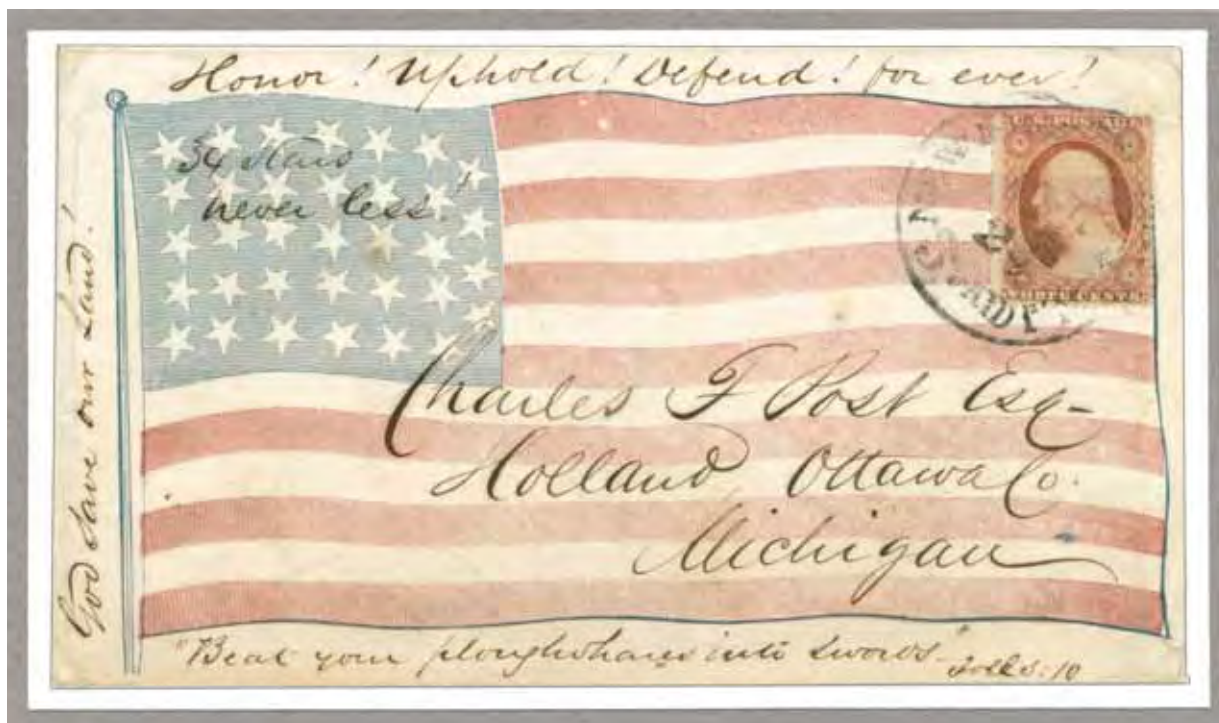 Honor! Uphold! Defend! for ever!
U.S. POSTAGE
34 stars
never less!
God save our Land!
Charles F Post Esq
Holland Ottawa Co.
Michigan
"Beat your ploughshares into swords"
Joel 3:10